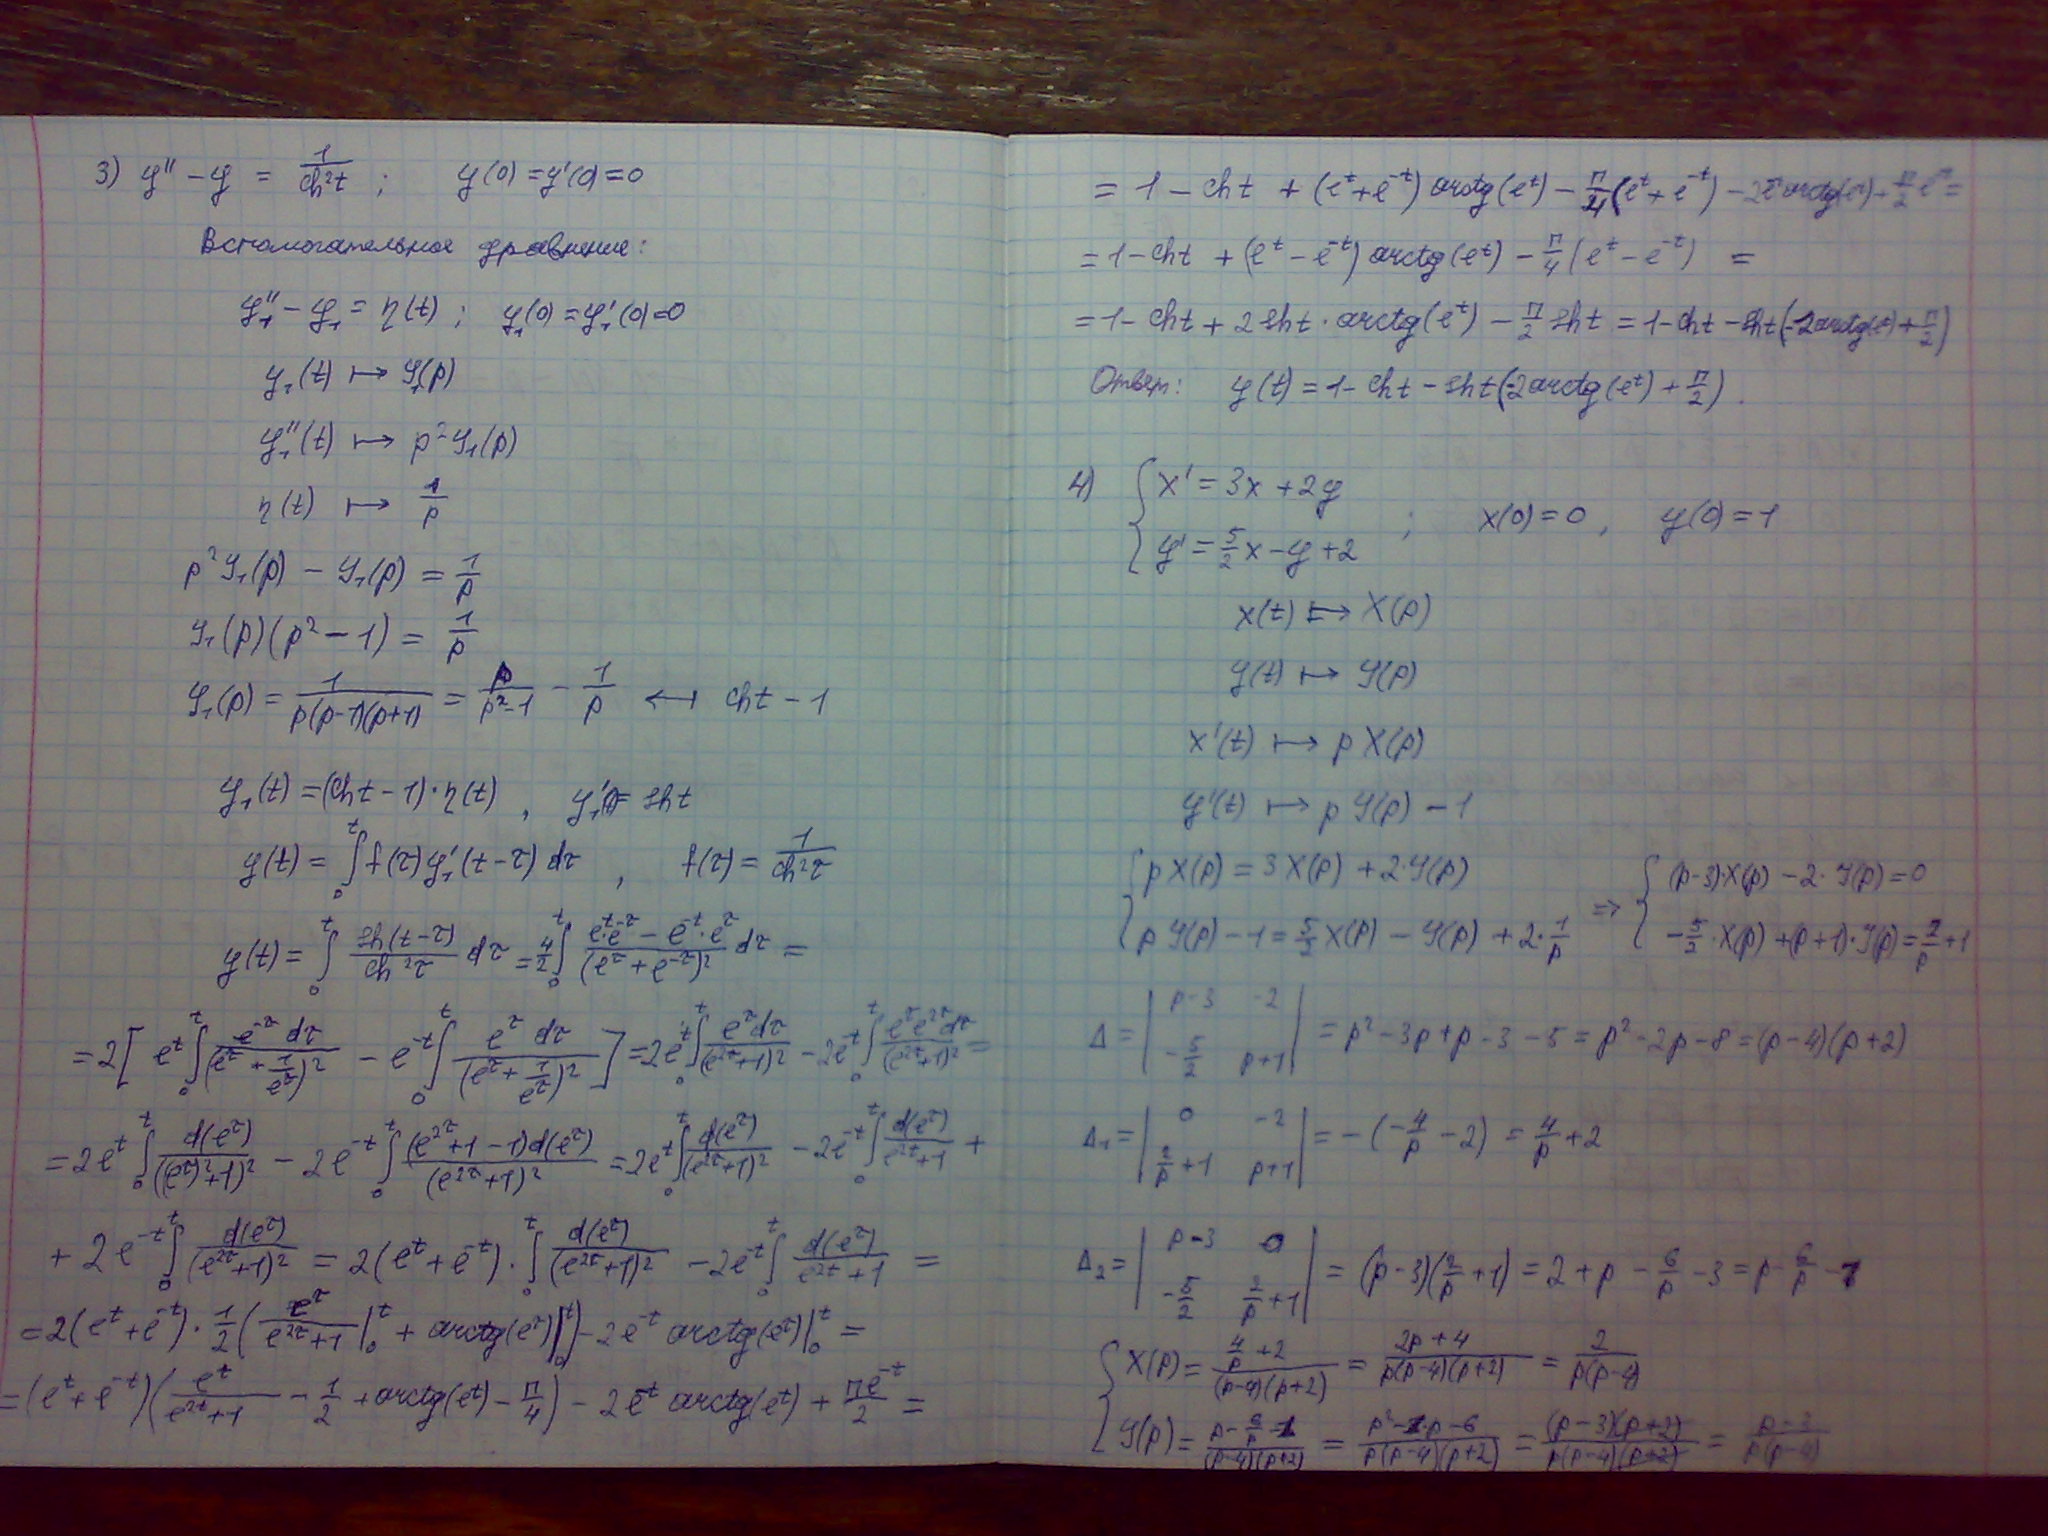 3) y'' − y = 1/ch²t ; y(0) = y'(0) = 0
Вспомогательное уравнение:
y₁'' − y₁ = η(t) ; y₁(0) = y₁'(0) = 0
y₁(t) ↦ Y₁(p)
y₁''(t) ↦ p²Y₁(p)
η(t) ↦ 1/p
p²Y₁(p) − Y₁(p) = 1/p
Y₁(p)(p² − 1) = 1/p
Y₁(p) = 1/(p(p−1)(p+1)) = p/(p²−1) − 1/p ↤ cht − 1
y₁(t) = (cht − 1)·η(t) , y₁' = sht
y(t) = ∫₀ᵗ f(τ) y₁'(t−τ) dτ , f(τ) = 1/ch²τ
y(t) = ∫₀ᵗ sh(t−τ)/ch²τ dτ = 4/2 ∫₀ᵗ (eᵗe^(−τ) − e^(−t)·e^τ)/(e^τ + e^(−τ))² dτ =
= 2[ eᵗ ∫₀ᵗ e^(−τ)dτ/(e^τ + 1/e^τ)² − e^(−t) ∫₀ᵗ e^τ dτ/(e^τ + 1/e^τ)² ] = 2eᵗ ∫₀ᵗ e^τdτ/(e^(2τ)+1)² − 2e^(−t) ∫₀ᵗ e^τe^(2τ)dτ/(e^(2τ)+1)² =
= 2eᵗ ∫₀ᵗ d(e^τ)/((e^τ)²+1)² − 2e^(−t) ∫₀ᵗ (e^(2τ)+1−1)d(e^τ)/(e^(2τ)+1)² = 2eᵗ ∫₀ᵗ d(e^τ)/(e^(2τ)+1)² − 2e^(−t) ∫₀ᵗ d(e^τ)/(e^(2τ)+1) +
+ 2e^(−t) ∫₀ᵗ d(e^τ)/(e^(2τ)+1)² = 2(eᵗ + e^(−t))·∫₀ᵗ d(e^τ)/(e^(2τ)+1)² − 2e^(−t) ∫₀ᵗ d(e^τ)/(e^(2τ)+1) =
= 2(eᵗ+e^(−t))·1/2 (e^τ/(e^(2τ)+1)|₀ᵗ + arctg(e^τ)|₀ᵗ) − 2e^(−t) arctg(e^τ)|₀ᵗ =
= (eᵗ+e^(−t))(eᵗ/(e^(2t)+1) − 1/2 + arctg(eᵗ) − π/4) − 2e^(−t) arctg(eᵗ) + πe^(−t)/2 =
= 1 − cht + (eᵗ+e^(−t)) arctg(eᵗ) − π/4(eᵗ+e^(−t)) − 2e^(−t)arctg(eᵗ) + π/2 e^(−t) =
= 1 − cht + (eᵗ − e^(−t)) arctg(eᵗ) − π/4(eᵗ − e^(−t)) =
= 1 − cht + 2sht·arctg(eᵗ) − π/2 sht = 1 − cht − sht(−2arctg(eᵗ) + π/2)
Ответ: y(t) = 1 − cht − sht(−2arctg(eᵗ) + π/2).
4) { x' = 3x + 2y
y' = 5/2 x − y + 2 ; x(0) = 0 , y(0) = 1
x(t) ↦ X(p)
y(t) ↦ Y(p)
x'(t) ↦ pX(p)
y'(t) ↦ pY(p) − 1
{ pX(p) = 3X(p) + 2·Y(p)
pY(p) − 1 = 5/2 X(p) − Y(p) + 2·1/p ⇒ { (p−3)·X(p) − 2·Y(p) = 0
−5/2·X(p) + (p+1)·Y(p) = 2/p + 1
Δ = | p−3 −2 |
| −5/2 p+1 | = p² − 3p + p − 3 − 5 = p² − 2p − 8 = (p−4)(p+2)
Δ₁ = | 0 −2 |
| 2/p+1 p+1 | = −(−4/p − 2) = 4/p + 2
Δ₂ = | p−3 0 |
| −5/2 2/p+1 | = (p−3)(2/p+1) = 2 + p − 6/p − 3 = p − 6/p − 1
{ X(p) = (4/p + 2)/((p−4)(p+2)) = (2p+4)/(p(p−4)(p+2)) = 2/(p(p−4))
Y(p) = (p − 6/p − 1)/((p−4)(p+2)) = (p² − p − 6)/(p(p−4)(p+2)) = (p−3)(p+2)/(p(p−4)(p+2)) = (p−3)/(p(p−4))